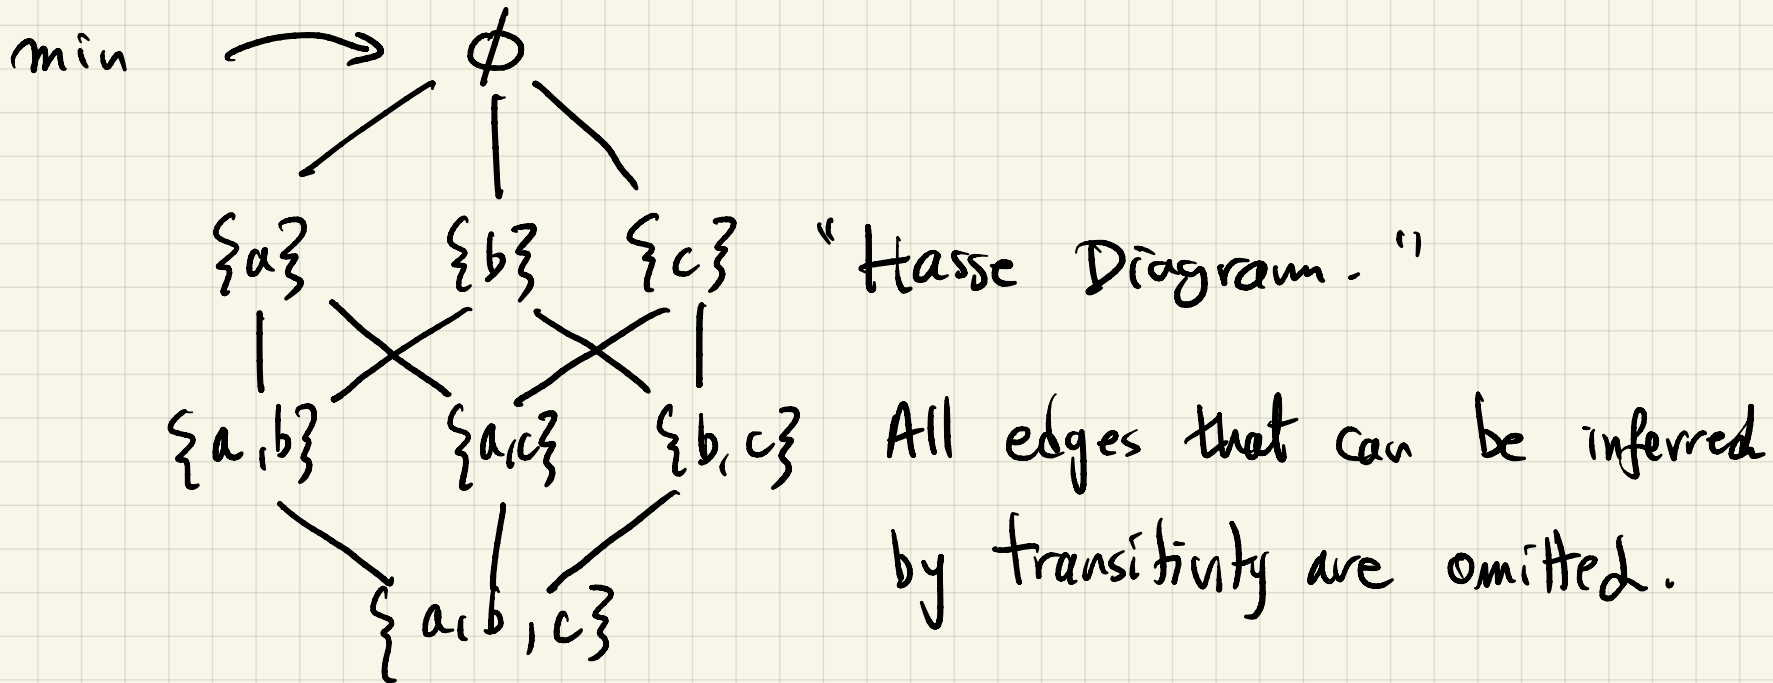 min ∅
{a} {b} {c} "Hasse Diagram."
{a,b} {a,c} {b,c} All edges that can be inferred
by transitivity are omitted.
{a,b,c}